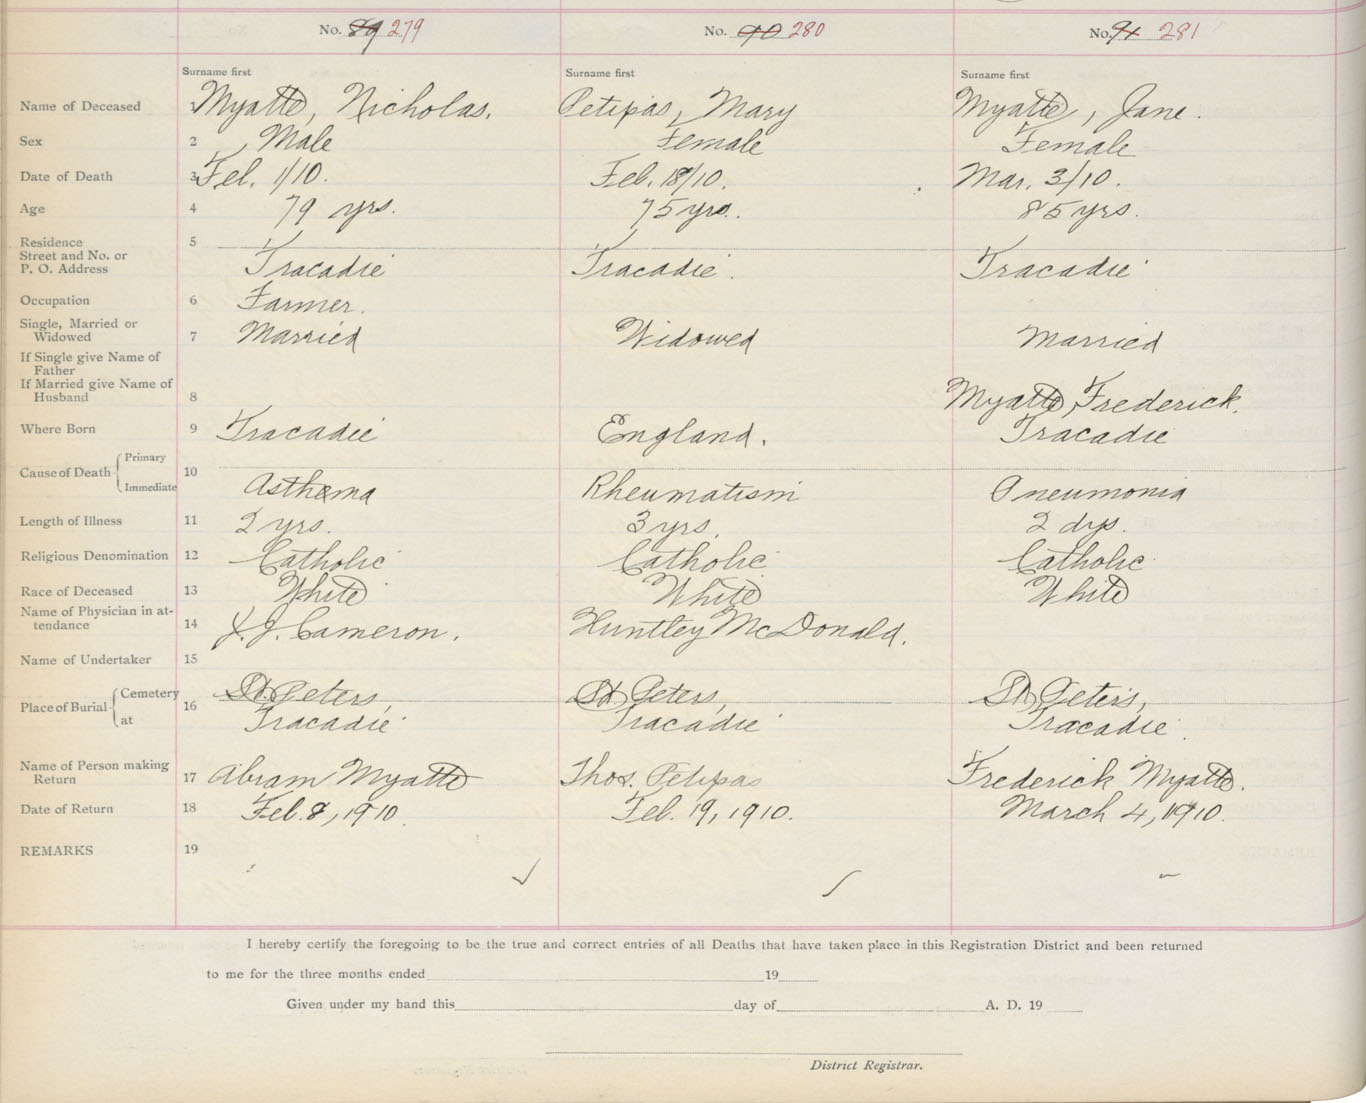 No. 89 279 No. 90 280 No. 91 281
Surname first Surname first Surname first
Name of Deceased 1 Myatte, Nicholas. Petipas, Mary Myatte, Jane.
Sex 2 Male Female Female
Date of Death 3 Feb. 1/10. Feb. 18/10. Mar. 3/10.
Age 4 79 yrs. 75 yrs. 85 yrs.
Residence 5
Street and No. or
P. O. Address Tracadie Tracadie. Tracadie
Occupation 6 Farmer.
Single, Married or
Widowed 7 Married Widowed Married
If Single give Name of
Father
If Married give Name of
Husband 8 Myatte, Frederick.
Where Born 9 Tracadie England. Tracadie
Cause of Death Primary 10
Immediate Asthma Rheumatism Pneumonia
Length of Illness 11 2 yrs. 3 yrs. 2 dys.
Religious Denomination 12 Catholic Catholic Catholic
Race of Deceased 13 White White White
Name of Physician in at-
tendance 14 J. J. Cameron. Huntley McDonald.
Name of Undertaker 15
Place of Burial Cemetery 16 St. Peters, St. Peters, St. Peter's,
at Tracadie Tracadie Tracadie.
Name of Person making
Return 17 Abram Myatte Thos. Petipas Frederick Myatte.
Date of Return 18 Feb. 8, 1910. Feb. 19, 1910. March 4, 1910.
REMARKS 19
I hereby certify the foregoing to be the true and correct entries of all Deaths that have taken place in this Registration District and been returned
to me for the three months ended 19
Given under my hand this day of A. D. 19
District Registrar.